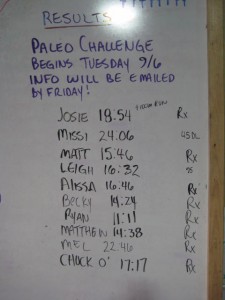 RESULTS
PALEO CHALLENGE
BEGINS TUESDAY 9/6
INFO WILL BE EMAILED
BY FRIDAY!
JOSIE 18:54 Rx
MISSI 24:06
MATT 15:46 Rx
LEIGH 16:32
ALISSA 16:46 Rx
BECKY 14:24 Rx
RYAN 11:11 Rx
MATTHEW 14:38 Rx
MEL 22:46 Rx
CHUCK O' 17:17 Rx